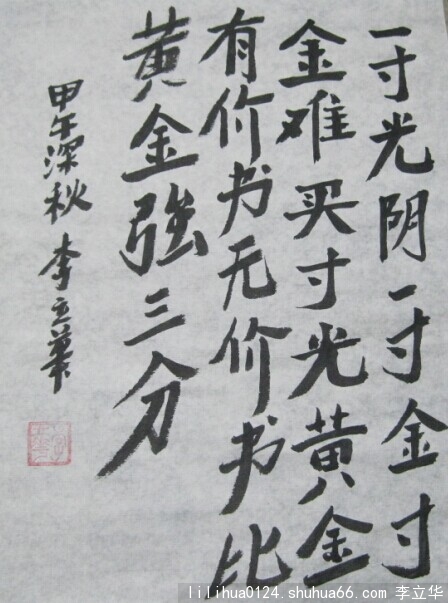 一寸光阴一寸金寸
金难买寸光黄金
有价书无价书比
黄金強三分
甲午深秋 李立華
lilihua0124.shuhua66.com 李立华